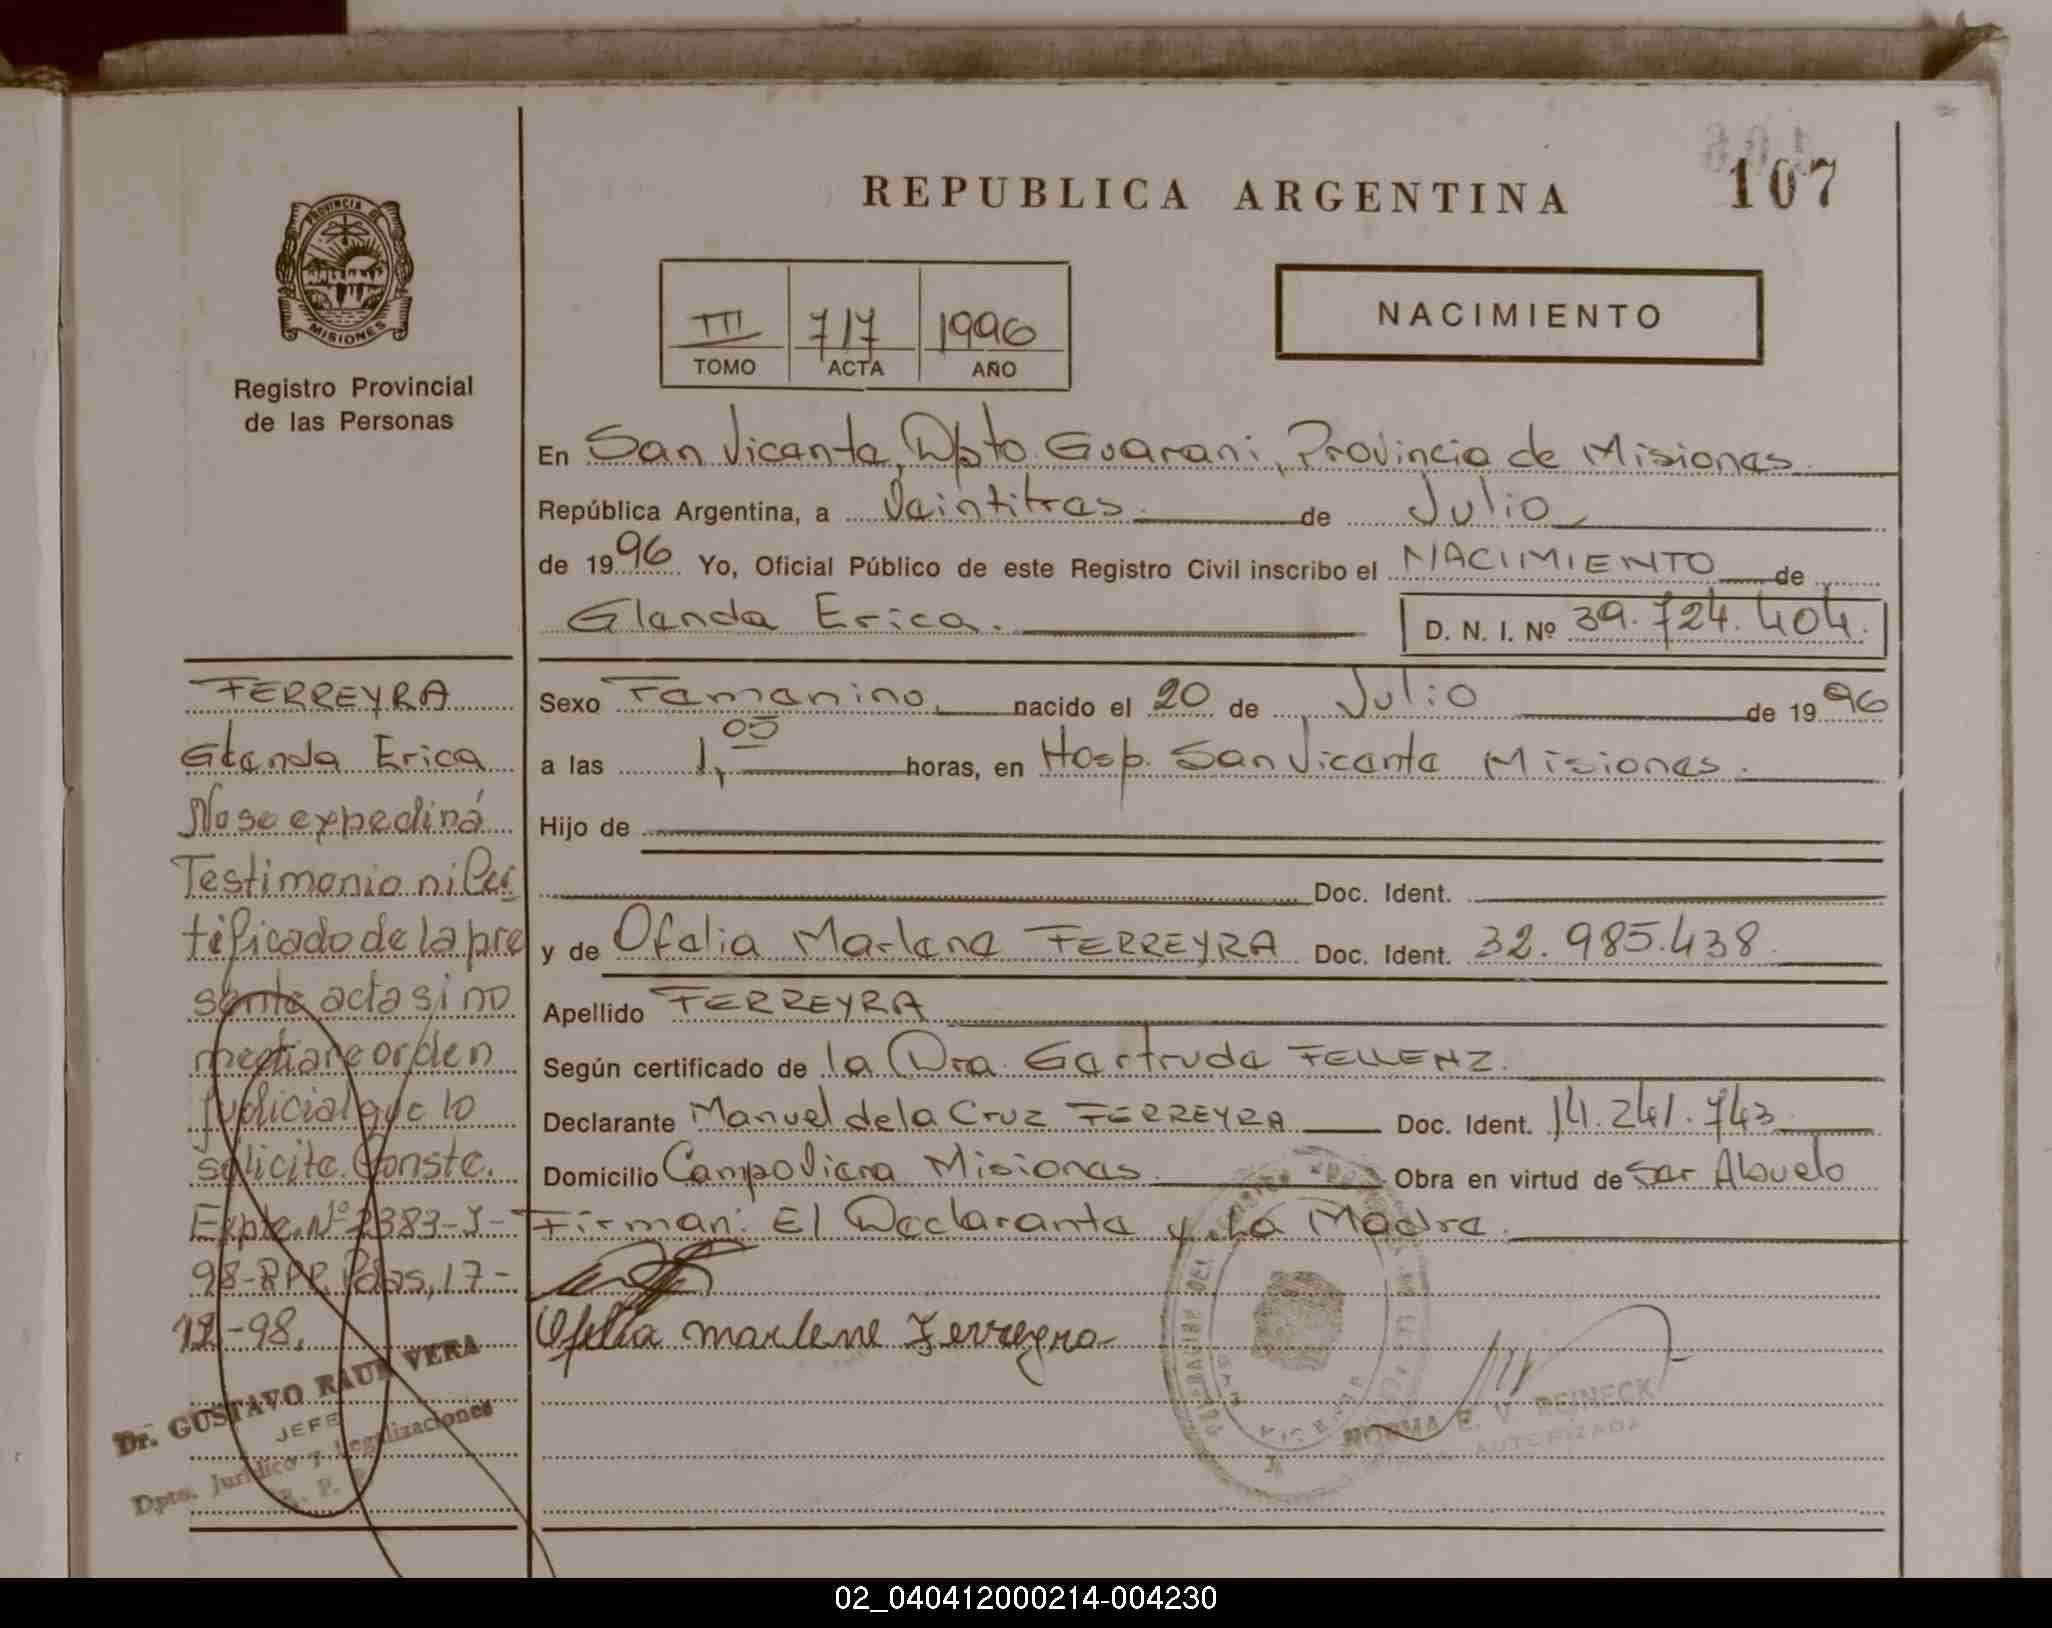 107
REPUBLICA ARGENTINA
PROVINCIA DE
MISIONES
Registro Provincial
de las Personas
III 717 1996
TOMO ACTA AÑO
NACIMIENTO
En San Vicente, Dpto. Guarani, Provincia de Misiones
República Argentina, a Veintitres de Julio
de 1996 Yo, Oficial Público de este Registro Civil inscribo el NACIMIENTO de
Glenda Erica. D. N. I. Nº 39.724.404.
Sexo Femenino, nacido el 20 de Julio de 1996
a las 1,05 horas, en Hosp. San Vicente Misiones.
Hijo de
Doc. Ident.
y de Ofelia Marlene FERREYRA Doc. Ident. 32.985.438
Apellido FERREYRA
Según certificado de la Dra. Gertrude FELLENZ.
Declarante Manuel de la Cruz FERREYRA Doc. Ident. 14.241.743
Domicilio Campo Viera Misiones. Obra en virtud de Ser Abuelo
Firman: El Declarante y La Madre.
Ofelia marlene Ferreyra
NORMA E. V. REINECK
AUTORIZADA
FERREYRA
Glenda Erica
No se expedirá
Testimonio ni Cer
tificado de la pre
sente acta si no
mediare orden
judicial que lo
solicite. Conste.
Expte. Nº 2383-J-
98-RPP. Pdas, 17-
12-98.
Dr. GUSTAVO RAUL VERA
JEFE
Dpto. Jurídico y Legalizaciones
R. P.
02_040412000214-004230